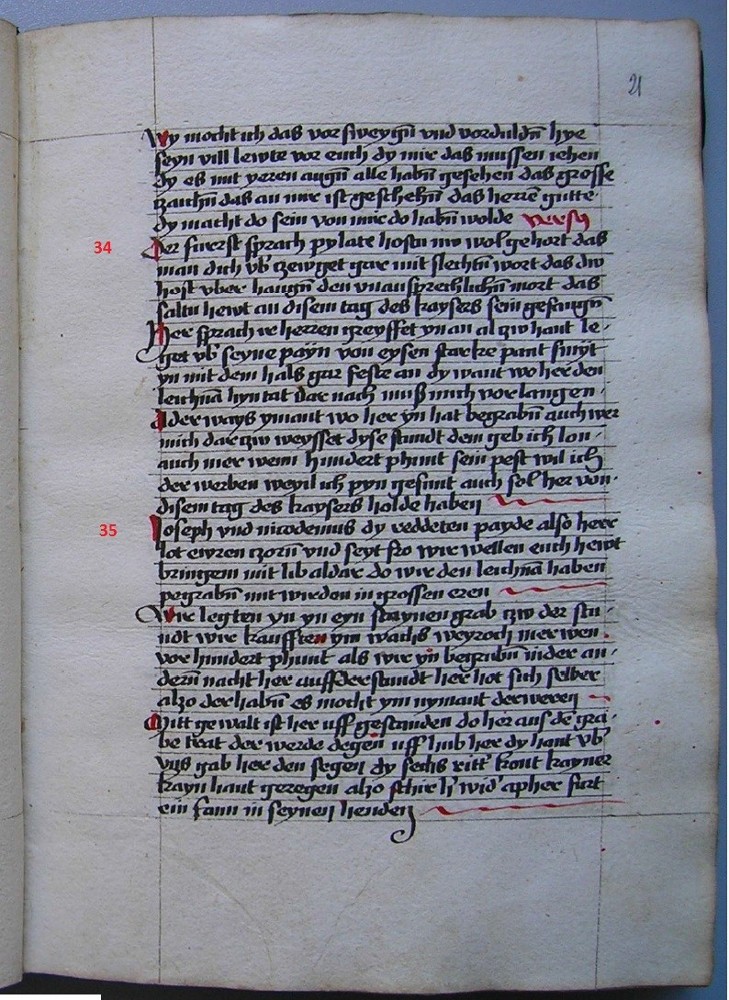 21
Wy mocht ich das vor sweygñ vnd vorduldñ hye
seyn vill lewte vor euch dy mir das mussen iehen
dy es mit yeren augñ alle habñ gesehen das grosse
zaichñ das an mir ist geschehñ das herrē gutte
dy macht do sein von mir do habñ wolde versch
34
Der fuerst sprach pylate hostu nw wol gehort das
man dich vb' czewget gar mit slechtñ wort das dw
host vber hangñ den vnaussprechlichñ mort das
saltu hewt an disem tag des kaysers sein gefangñ
Her sprach ir herren greyffet yn an al zw hant le-
get vb' seyne payn von eysen starcke pant smyt
yn mit dem hals gar feste an dy want wo her den
leichnā hyn tat dar nach muß mich vorlangen
Ader ways ymant wo her yn hat begrabñ auch wer
mich dar czw weysset dyse stundt dem geb ich lon
auch mer wenn hundert phunt sein pest wil ich
der werben weyil ich pyn gesunt auch sol her von
disem tag des kaysers holde haben
35
Joseph vnd nicodemus dy reddeten payde also herr
lot ewren czorn vnd seyt fro wir wellen euch hewt
bringem mit lib aldar do wir den leichnā haben
pegrabñ mit wirden in grossen eren
Wir legten yn yn eyn staynen grab czw der stu-
ndt wir kaufften ym wachs weyroch mer wen
vor hundert phunt als wir yn begrubñ in der an-
derñ nacht her aufferstundt her hot sich selber
also der habñ es mocht ym nymant derweren
Mitt gewalt ist her uff gestanden do her aus de gra-
be trat der werde degen uff hub her dy hant vb'
vns gab her den segen dy sechs ritt' kont kayner
kayn hant geregen also schir h' wid' apher furt
ein fann in seynen henden